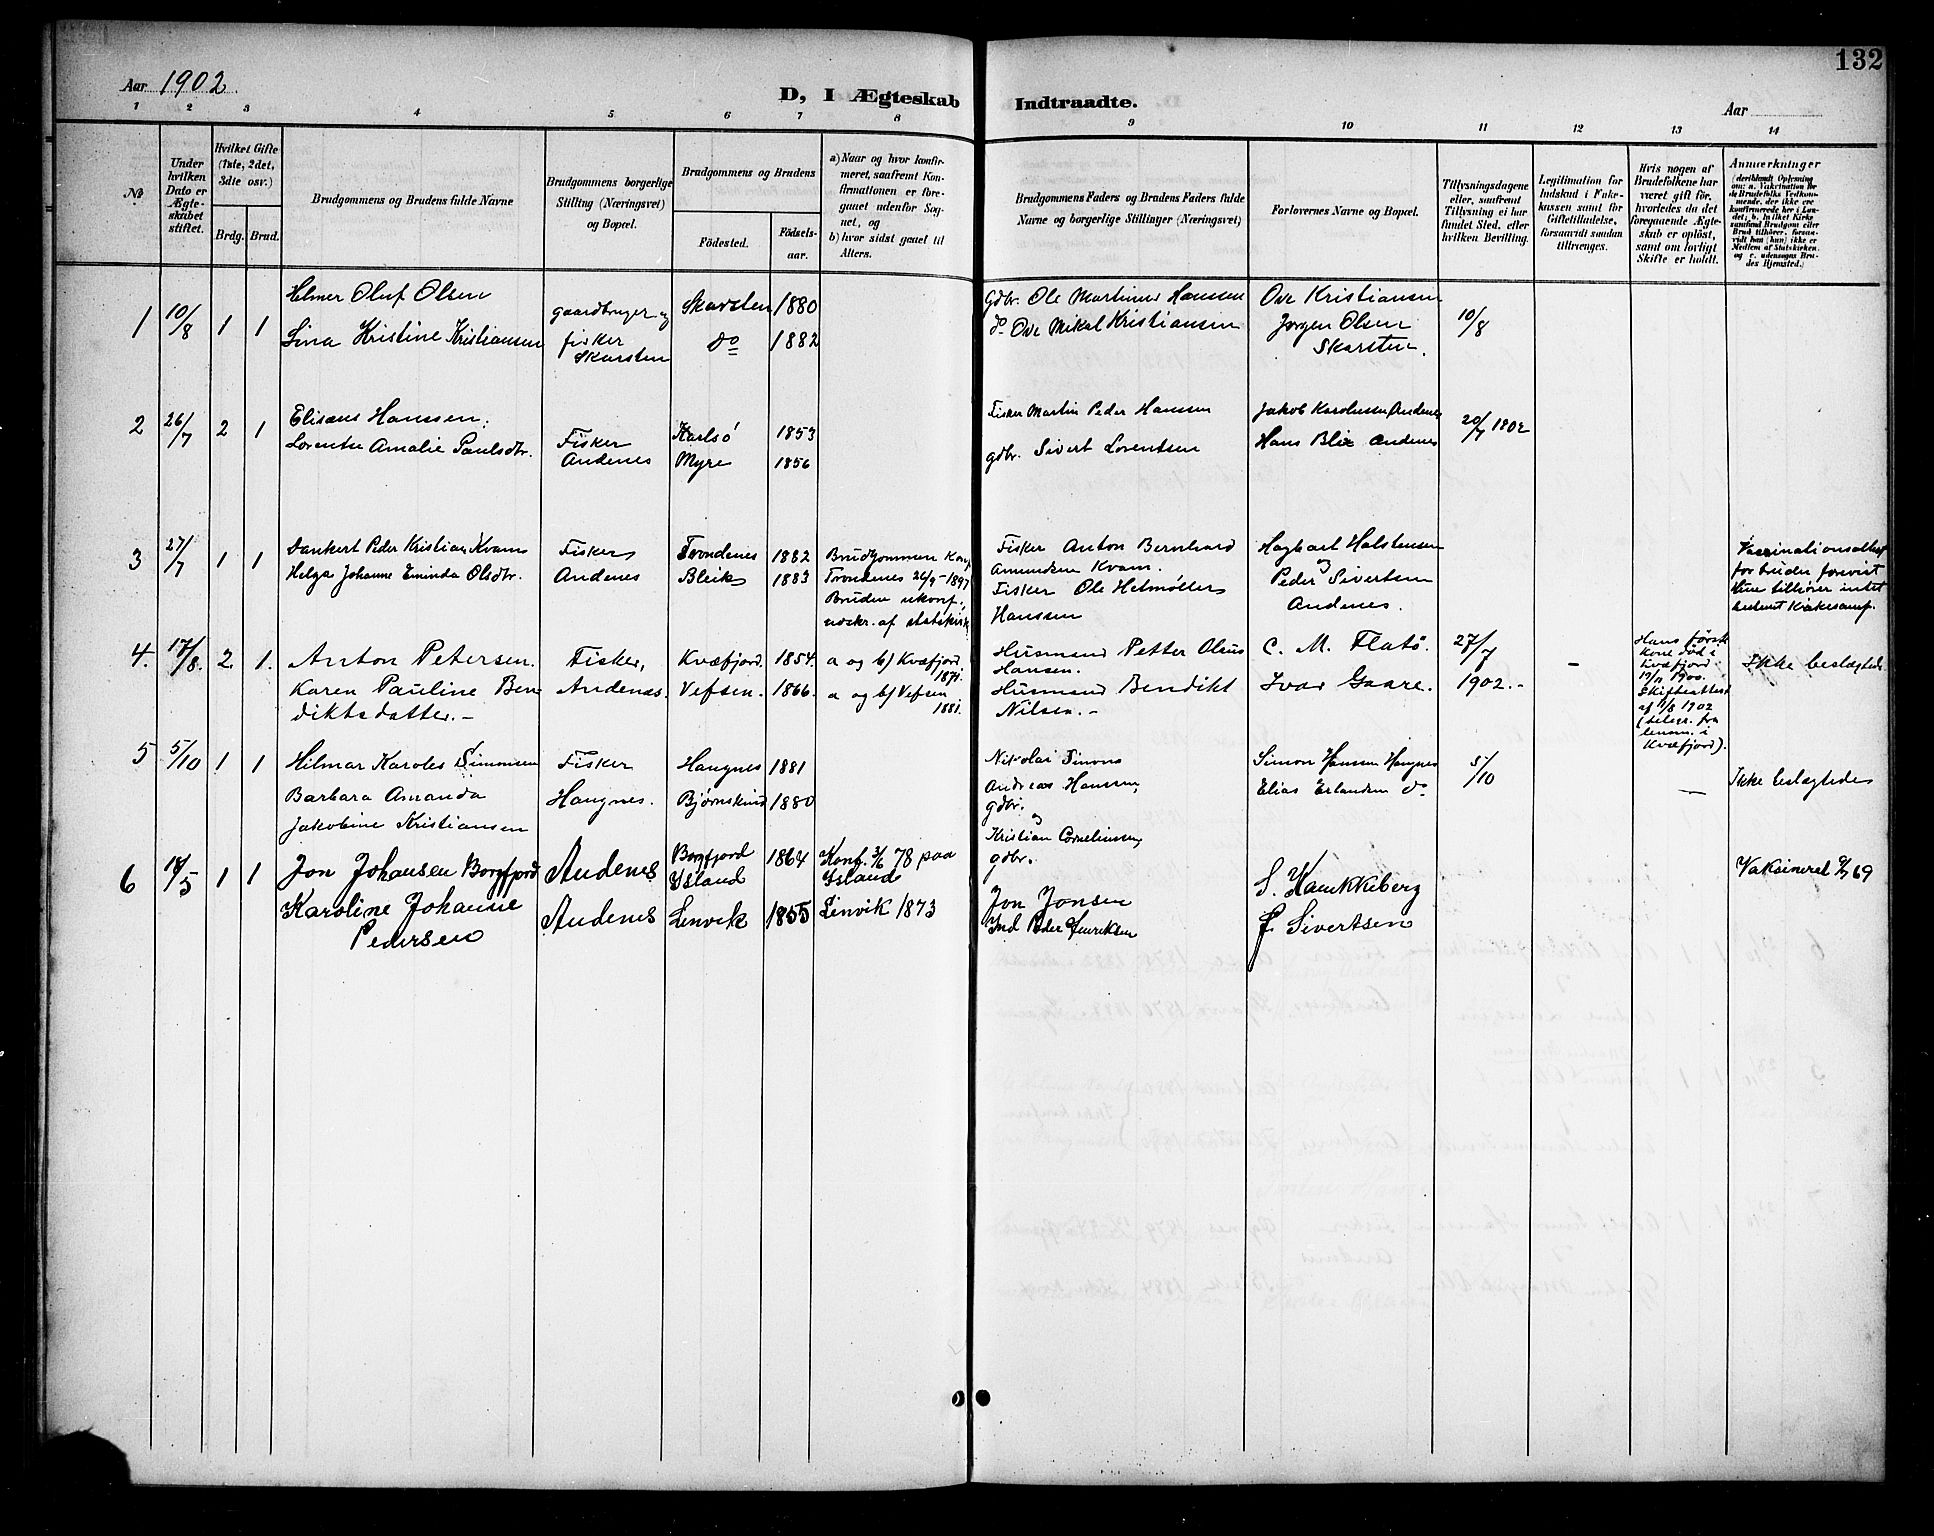 132
Aar 1902.
D, I Ægteskab Indtraadte.
Aar
1 2 3 4 5 6 7 8 9 10 11 12 13 14
№
Under hvilken Dato er Ægteskabet stiftet.
Hvilket Gifte (1ste, 2det, 3die osv.)
Brdg. Brud.
Brudgommens og Brudens fulde Navne
Brudgommens borgerlige Stilling (Næringsvei) og Bopæl.
Brudgommens og Brudens
Födested.
Födsels-aar.
a) Naar og hvor konfirmeret, saafremt Konfirmationen er foregaaet udenfor Sognet, og
b) hvor sidst gaaet til Alters.
Brudgommens Faders og Brudens Faders fulde Navne og borgerlige Stillinger (Næringsvei)
Forlovernes Navne og Bopæl.
Tillysningsdagene eller, saafremt Tillysning ei har fundet Sted, efter hvilken Bevilling.
Legitimation for Indskud i Enkekassen samt for Giftetilladelse, forsaavidt saadan tiltrænges.
Hvis nogen af Brudefolkene har været gift för, hvorledes da det foregaaende Ægteskab er oplöst, samt om lovligt Skifte er holdt.
Anmærkninger
1 10/8 1 1
Helmer Oluf Olsen
Lina Kristine Kristiansen
gaardbruger og
fisker
Skarsten
Skarsten 1880
do 1882
Gdbr. Ole Martinus Hanssen
do. Ove Mikal Kristiansen
Ove Kristiansen
Jørgen Olsen
Skarsten.
10/8
2 26/7 2 1
Elisæus Hanssen,
Lorentse Amalie Paulsdtr.
Fisker
Andenes
Karlsö 1853
Myre 1856
Fisker Martin Peder Hanssen
gdbr. Sivert Lorentsen
Jakob Karolussen Andenes
Hans Blix Andenes
20/7 1902
3 27/7 1 1
Dankert Peder Kristian Kvam
Helga Johanne Eminda Olsdtr.
Fisker
Andenes
Trondenes 1882
Bleik 1883
Brudgommen Konf.
Trondenes 26/9-1897
Bruden ukonf.,
udskr. af statskirk
Fisker Anton Bernhard
Amundsen Kvam.
Fisker Ole Helmøller
Hanssen
Hagbart Halstensen
og
Peder Sivertsen
Andenes.
Vaccinationsattest
for bruden forevist
Hun tilhører intet
bestemt Kirkesamf.
4. 17/8. 2. 1.
Anton Petersen.
Karen Pauline Ben
diktsdatter.-
Fisker,
Andenæs.
Kvæfjord. 1854.
Vefsen. 1866.
a og b/ Kvæfjord.
1871.
a og b/ Vefsen
1881.
Husmand Petter Olaus
Hansen.
Husmand Bendikt
Nilsen.-
C. M. Flatö.
Ivar Gaare.
27/7
1902.-
-
Hans første
kone död i
Kvæfjord
1900.
Skifteattest
af 1/8 1902
(telegr. fra
lensm. i
Kvæfjord).
Ikke beslægtede
5 5/10 1 1
Hilmar Karoles Simonsen
Barbara Amanda
Jakobine Kristiansen
Fisker
Haugnes.
Haugnes 1881
Bjørnskind 1880
Nikolai Simons
Andreas Hanssen,
gdbr.
og
Kristian Corneliussen,
gdbr.
Simon Hanssen Haugnes
Elias Erlandsen do
5/10
—
Ikke beslægtede
6 18/5 1 1
Jon Johansen Borgfjord
Karoline Johanne
Pedersen
Andenes
Andenes
Borgfjord
Island 1864
Lenvik 1855
Konf. 3/6 78 paa
Island
Lenvik 1873
Jon Jonsen
Ind Peder Henriksen
S. Kanikkeberg
P. Sivertsen
Vaksineret 9/7 69